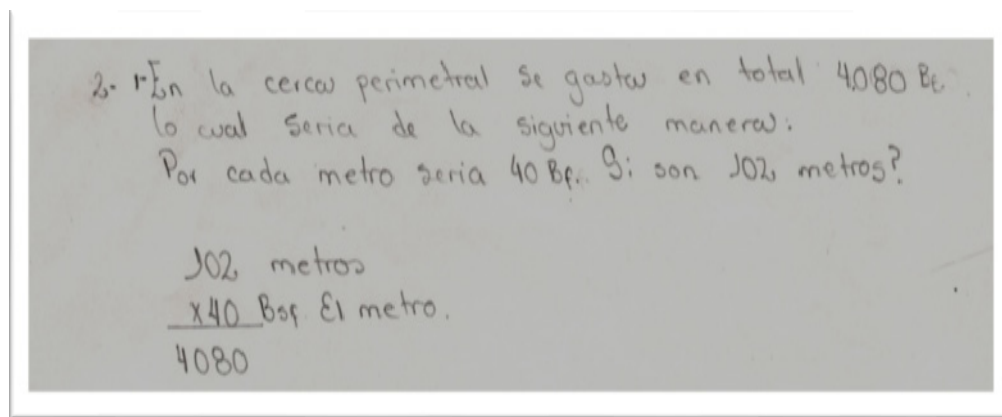 2. 1-En la cerca perimetral se gasta en total 4.080 Bf.
lo cual seria de la siguiente manera:
Por cada metro seria 40 Bf. Si son 102 metros?
102 metros
x40 Bsf El metro.
4080